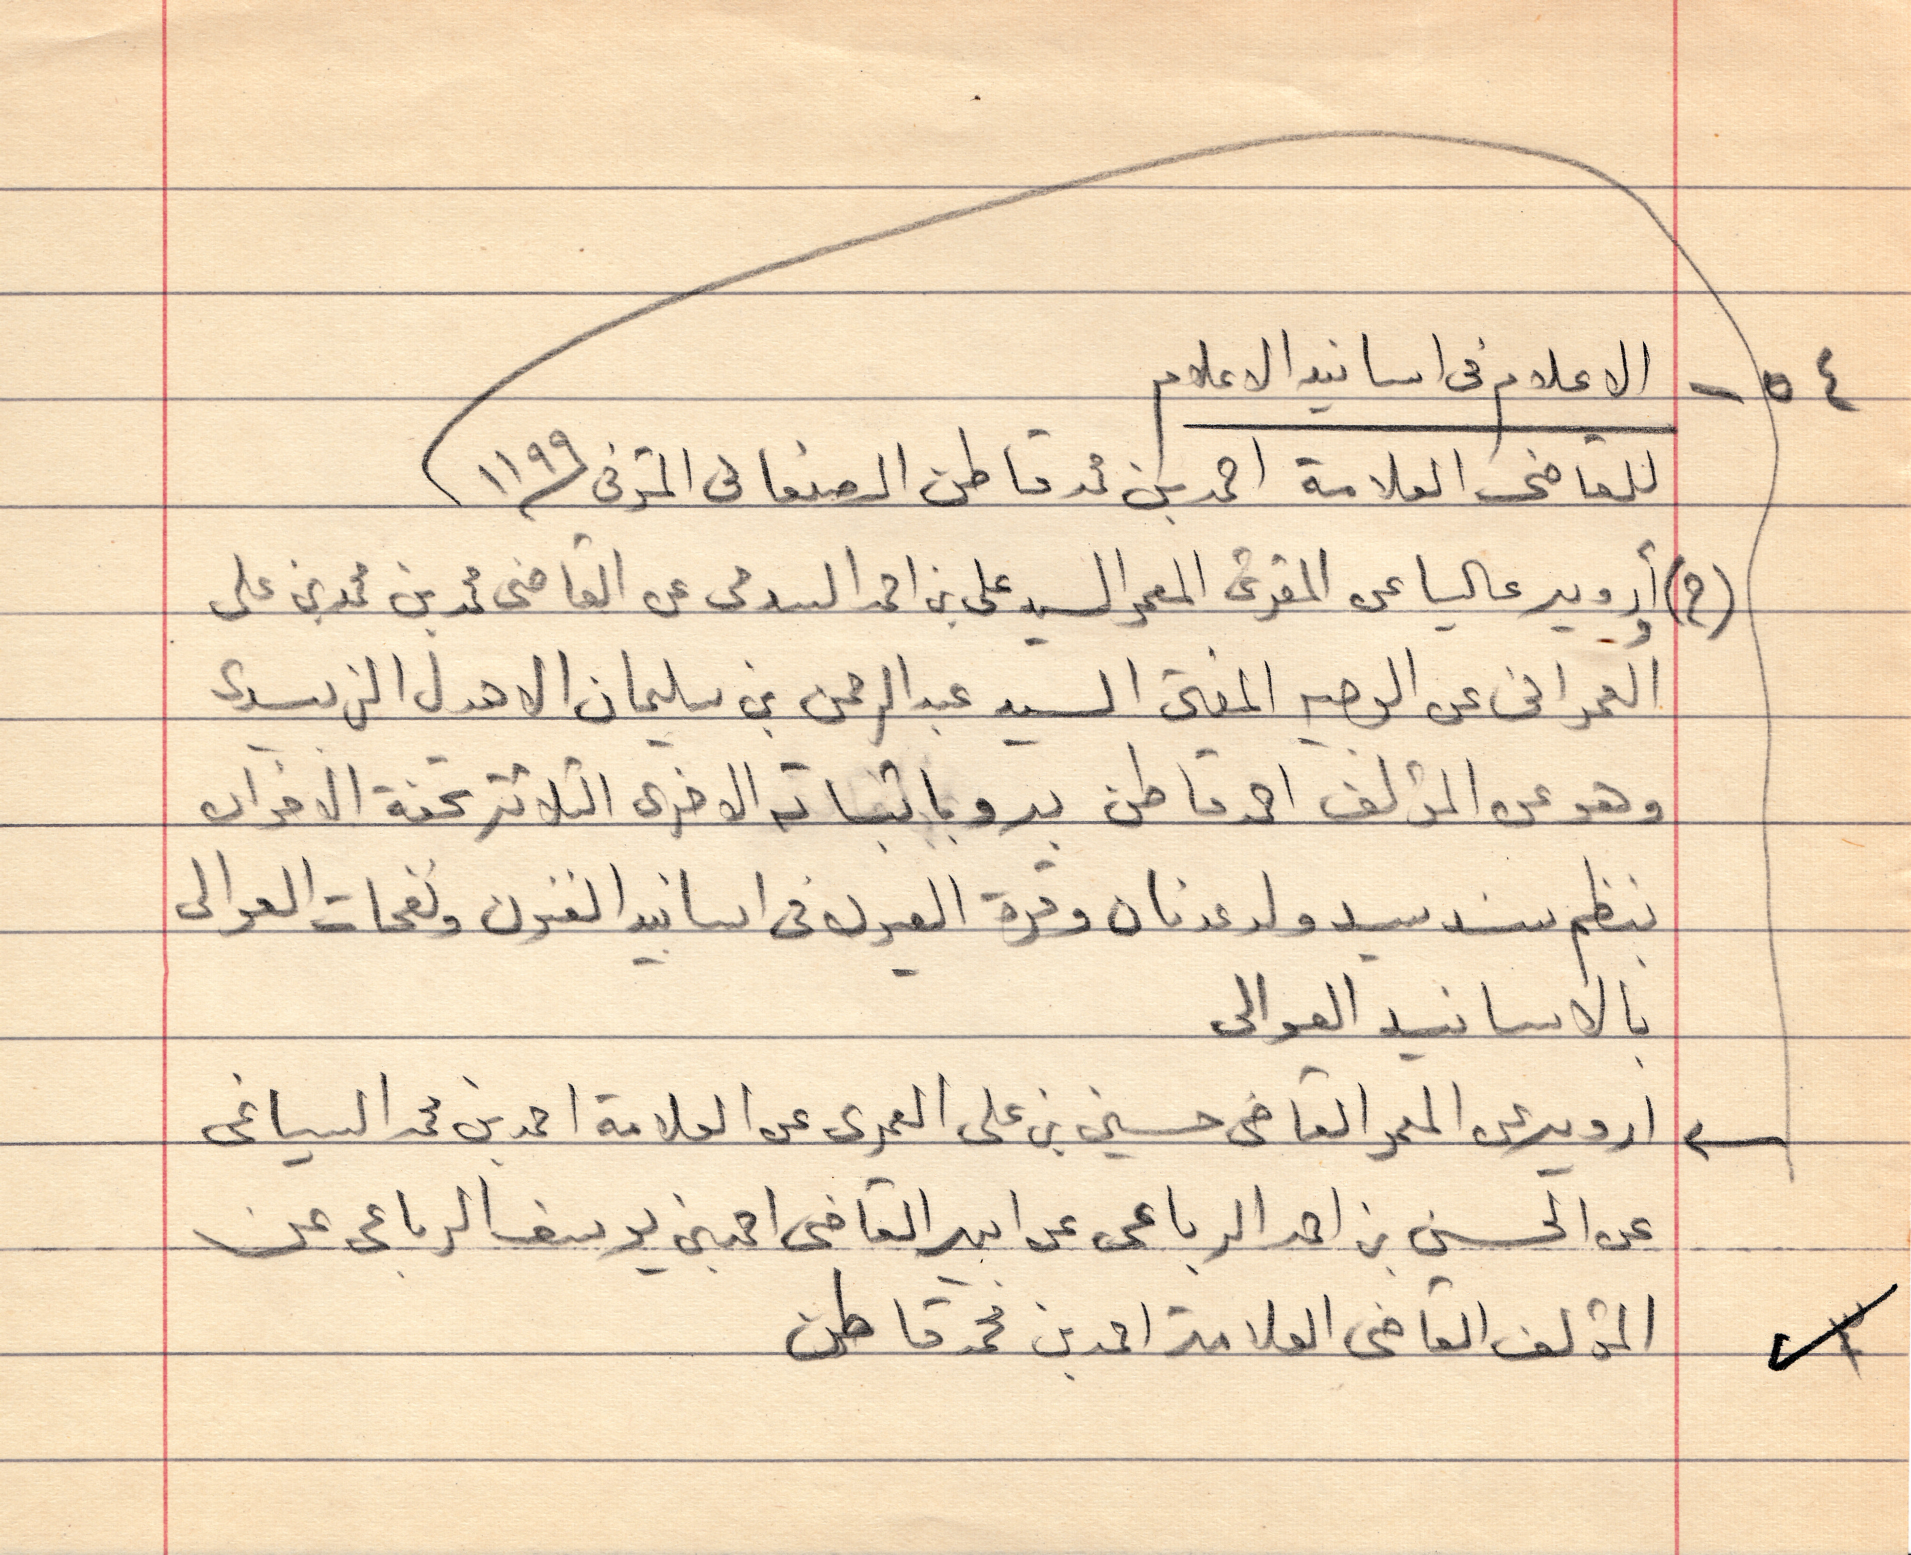 ٥٤ - الاعلام فى اسانيد الاعلام
للقاضى العلامة احمد بن محمد قاطن الصنعانى المتوفى ١١٩٩
(ح) وأرويه عاليا عن المقرئ المعمر السيد على بن احمد السدمى عن القاضى محمد بن محمد بن على
العمرانى عن الوجيه المفتى السيد عبدالرحمن بن سليمان الاهدل الزبيدى
وهو عن المؤلف احمد قاطن به وباثباته الاخرى الثلاثة تحفة الاخوان
بنظم سند سيد ولد عدنان وقرة العيون فى اسانيد الفنون ونفحات الغوالى
بالاسانيد العوالى
ارويه عن المعمر القاضى حسين بن على العمرى عن العلامة احمد بن محمد السياغى
عن الحسين بن احمد الرباعى عن ابيه القاضى احمد بن يوسف الرباعى عن
المؤلف القاضى العلامة احمد بن محمد قاطن